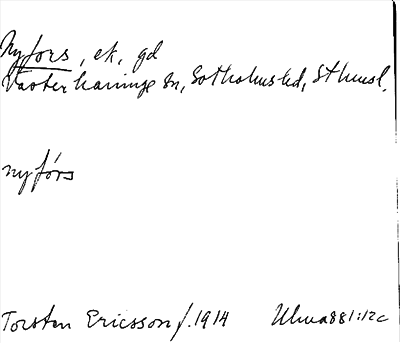 Nyfors, ek, gd
Västerhaninge sn, Sotholms hd, Sthmsl.
nyfórs
Torsten Ericsson f. 1914 Uhwa881:12c